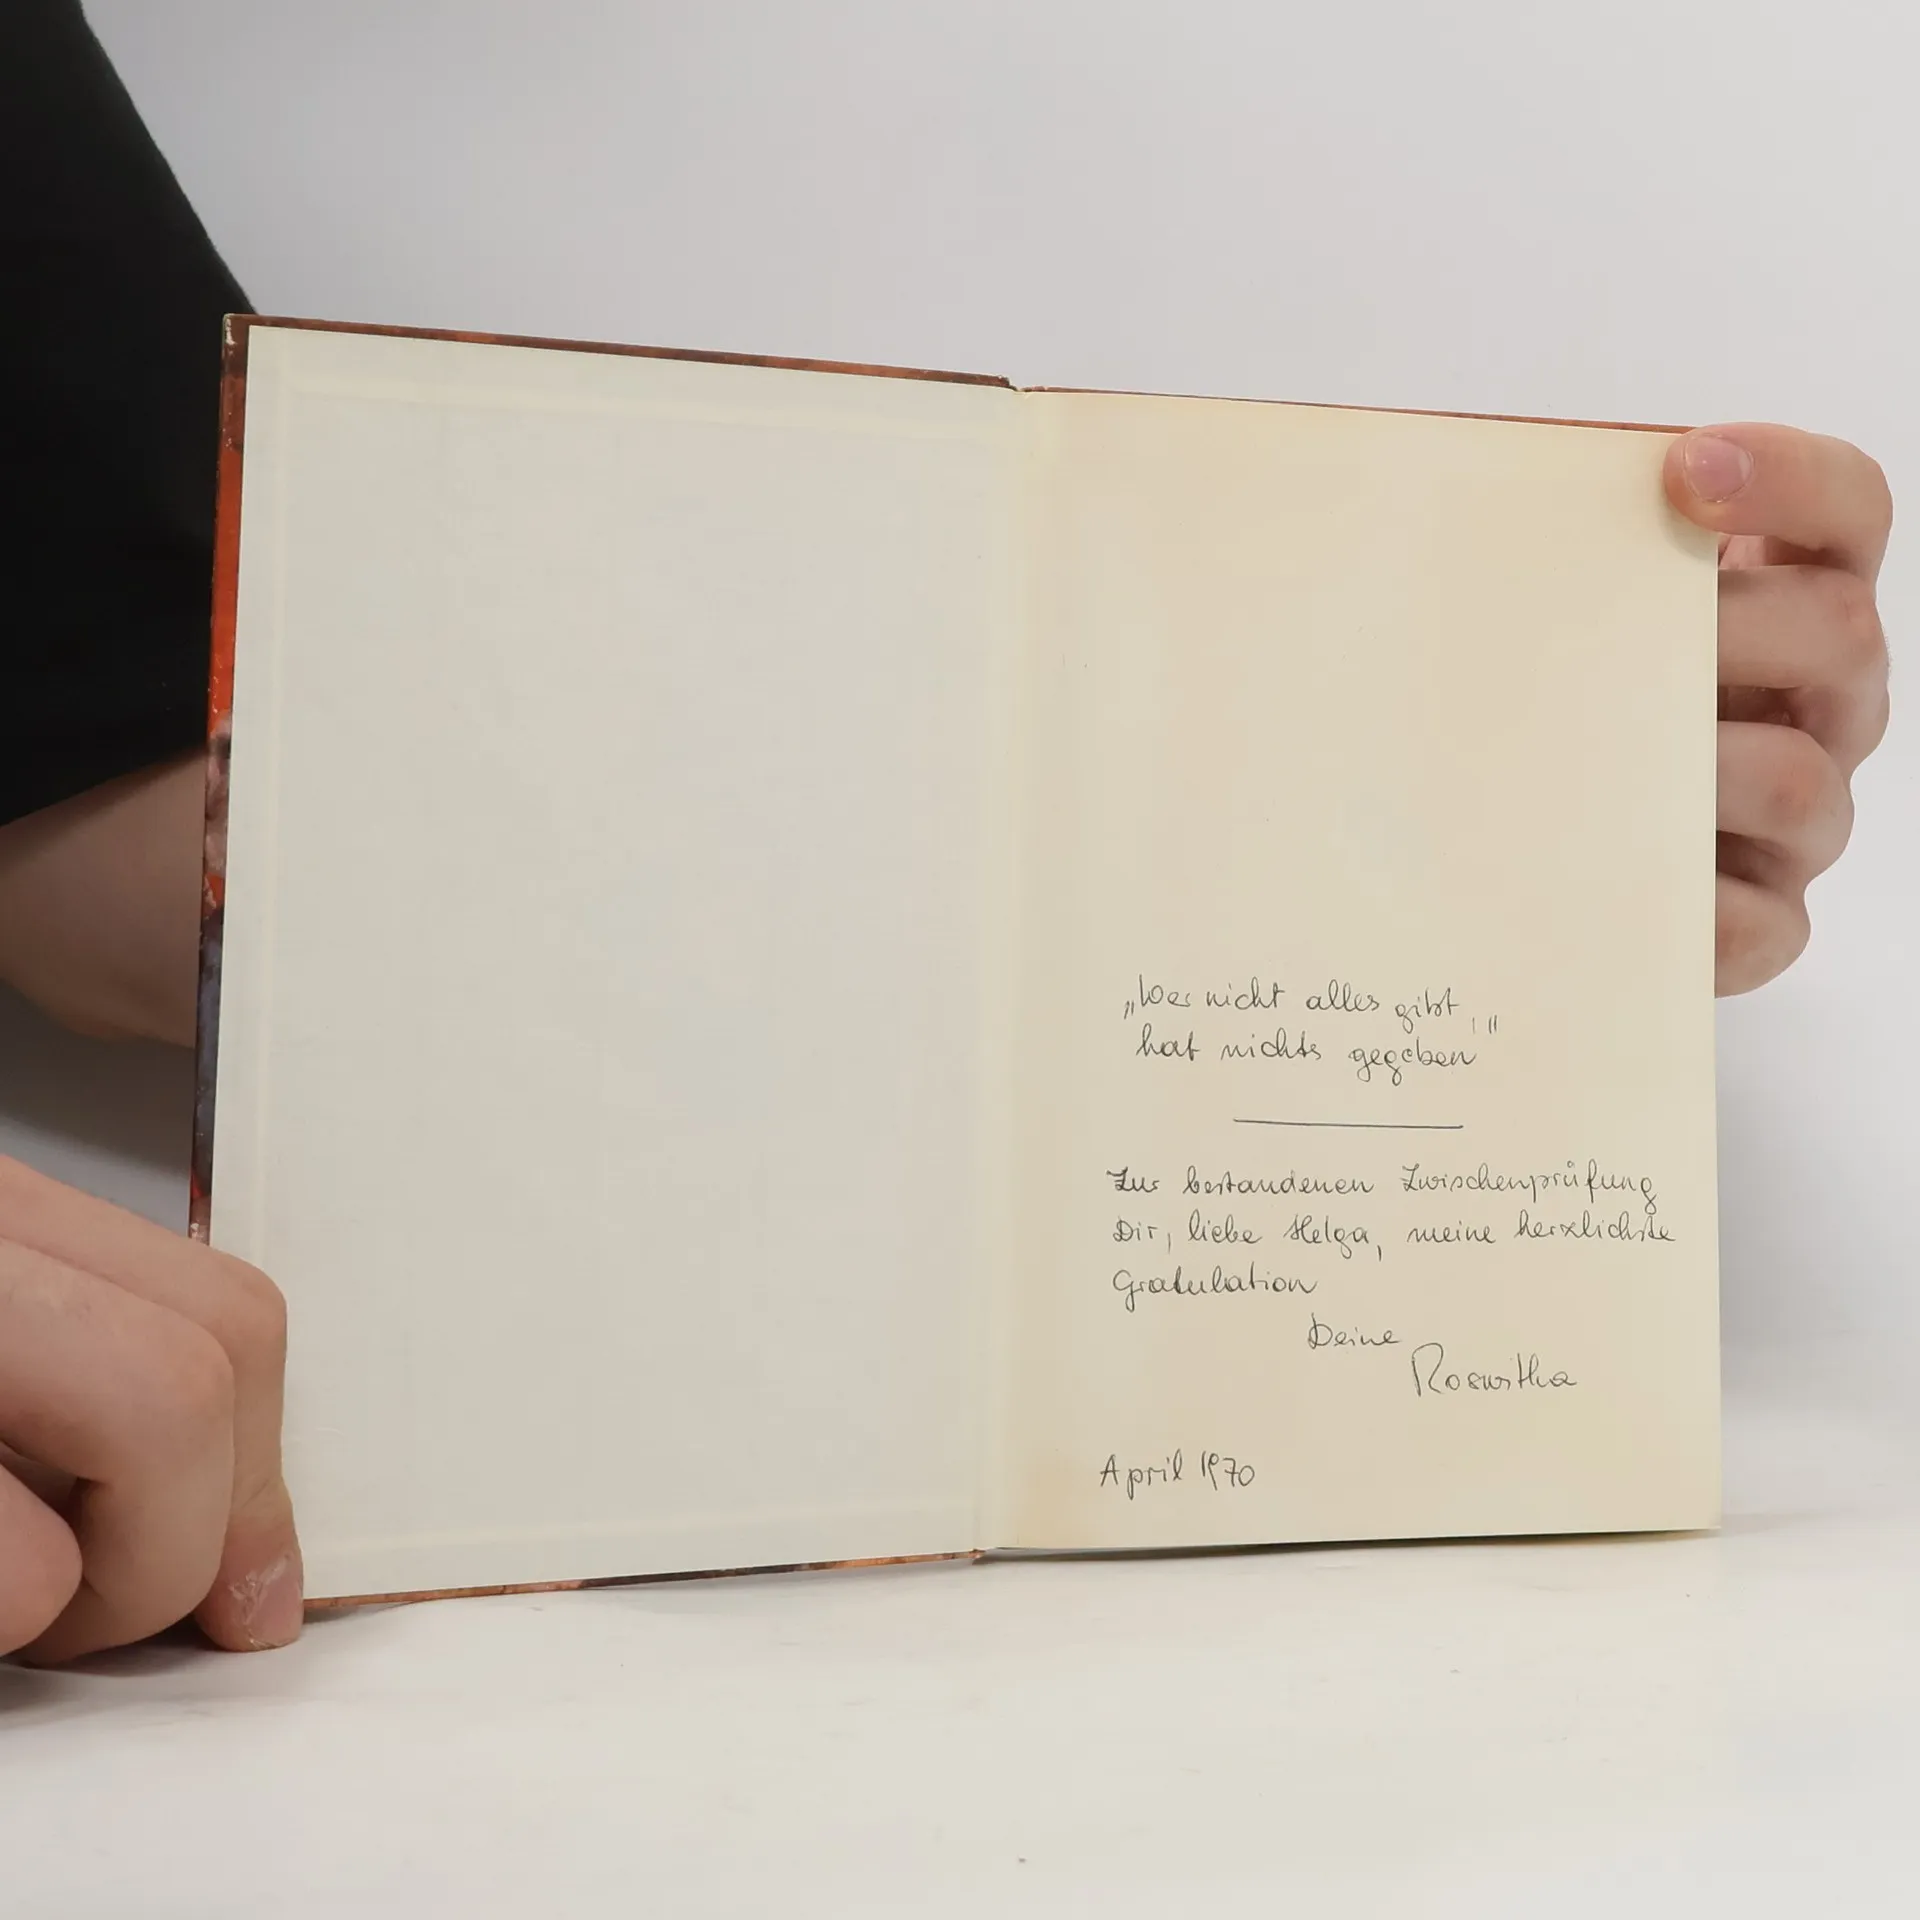 „Wer nicht alles gibt,
hat nichts gegeben"
Zur bestandenen Zwischenprüfung
Dir, liebe Helga, meine herzlichste
Gratulation
Deine
Roswitha
April 1970